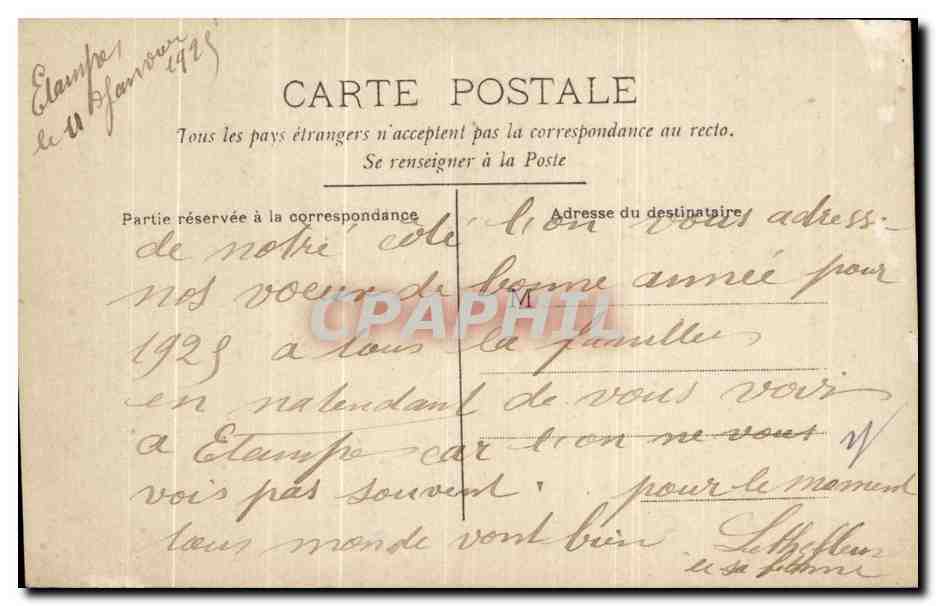 Etampes
le 11 Janvier
1925
CARTE POSTALE
Tous les pays étrangers n'acceptent pas la correspondance au recto.
Se renseigner à la Poste
Partie réservée à la correspondance
Adresse du destinataire
M
CPAPHIL
de notre coté l'on vous adress
nos voeux de bonne année pour
1925 a tous la famille
en natendant de vous voir
a Etampes car l'on ne vous
vois pas souvent. pour le moment
tous monde vont bien
et sa femme